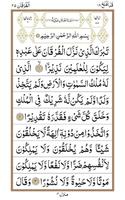 الفرقان ٢٥
بِسْمِ اللّٰهِ الرَّحْمٰنِ الرَّحِيْمِ
تَبٰرَكَ الَّذِيْ نَزَّلَ الْفُرْقَانَ عَلٰى عَبْدِهٖ
لِيَكُوْنَ لِلْعٰلَمِيْنَ نَذِيْرًا ۙ الَّذِيْ
لَهٗ مُلْكُ السَّمٰوٰتِ وَالْاَرْضِ وَلَمْ يَتَّخِذْ
وَلَدًا وَّلَمْ يَكُنْ لَّهٗ شَرِيْكٌ فِي الْمُلْكِ
وَخَلَقَ كُلَّ شَيْءٍ فَقَدَّرَهٗ تَقْدِيْرًا
وَاتَّخَذُوْا مِنْ دُوْنِهٖٓ اٰلِهَةً لَّا يَخْلُقُوْنَ
شَيْـًٔا وَّهُمْ يُخْلَقُوْنَ وَلَا يَمْلِكُوْنَ
لِاَنْفُسِهِمْ ضَرًّا وَّلَا نَفْعًا وَّلَا يَمْلِكُوْنَ
مَوْتًا وَّلَا حَيٰوةً وَّلَا نُشُوْرًا